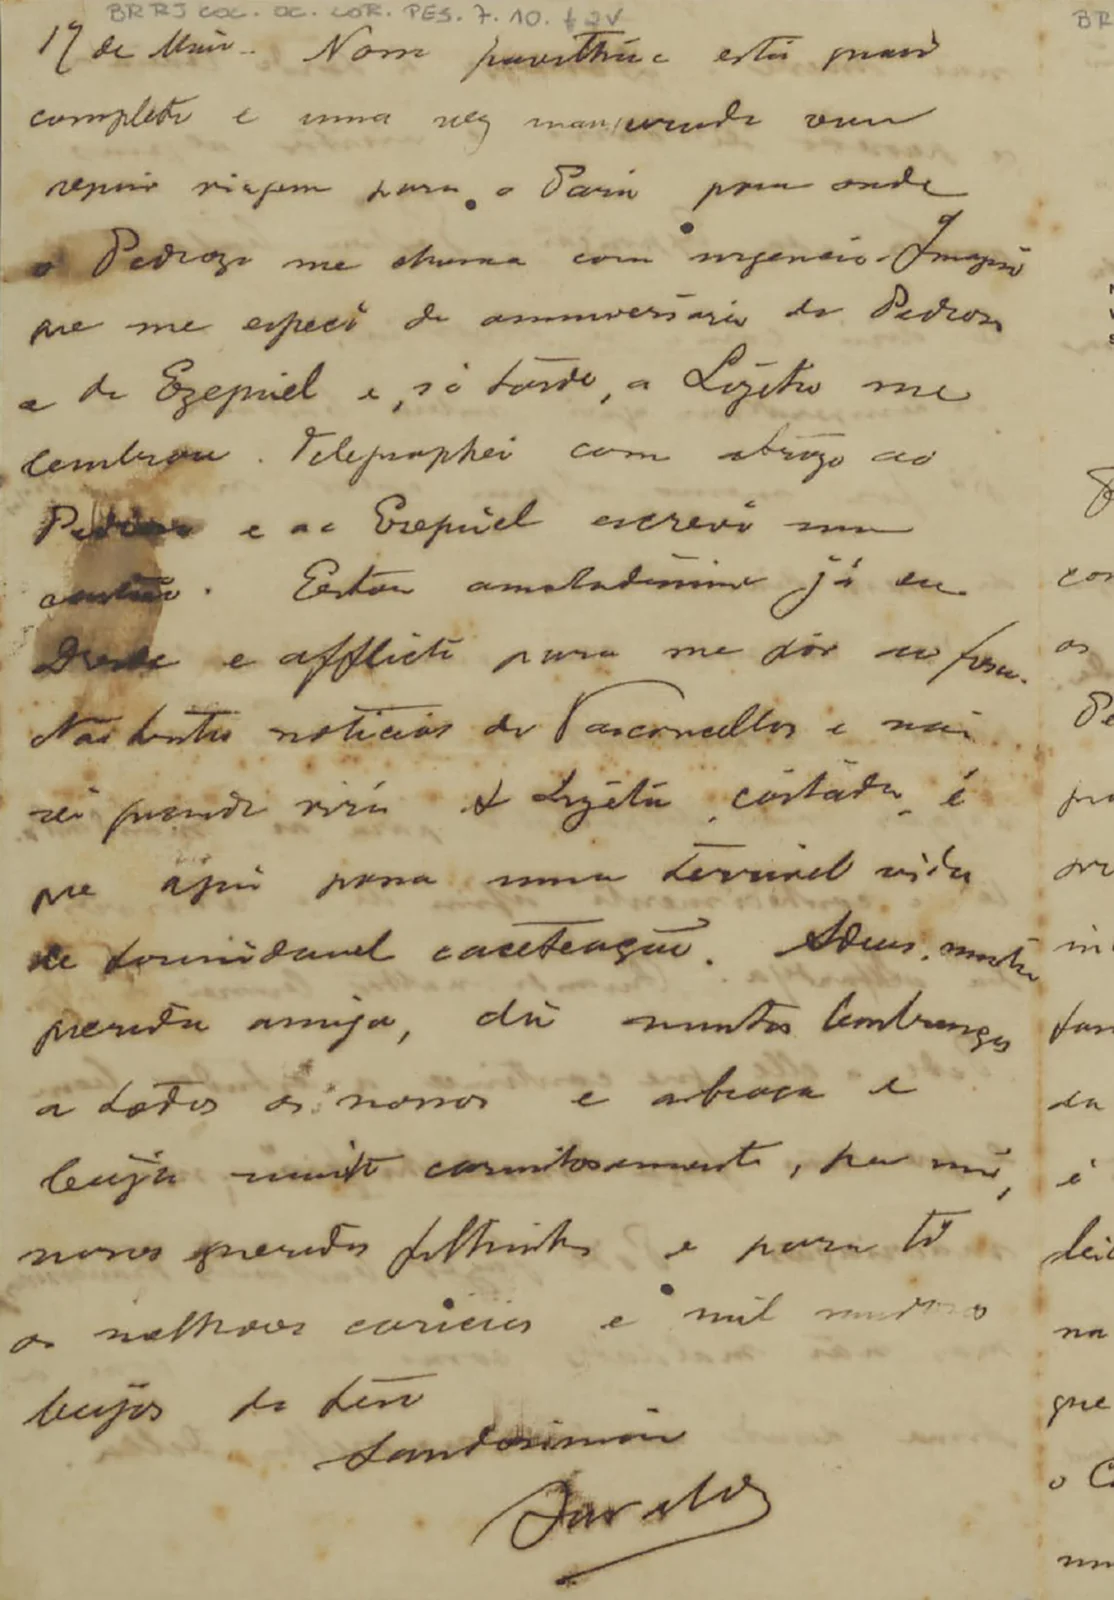 BR RJ COC. OC. COR. PES. 7. 10. f 2v
17 de Maio. Nosso está quasi
completo e uma vez inaugurado vou
seguir viagem para o Pará para onde
o Pedroso me chama com urgencia. Imagina
que me esqueci do anniversario do Pedroso
e do Ezequiel e, só tarde, a Lizeta me
lembrou. Telegraphei com abraço ao
Pedroso e ao Ezequiel escrevi um
cartão. Estou amoladissimo já em
e afflicto para me pôr ao fresco.
Não tenho noticias do Vasconcellos e não
sei quando virá. A Lizeta, coitada, é
que aqui passa uma terrivel vida
de formidavel caceteação. Adeus, minha
querida amiga, dá muitas lembranças
a todos os nossos e abraça e
beija muito carinhosamente, por mim,
nossos queridos filhinhos e para ti
as melhores caricias e mil
beijos do teu
saudosissimo